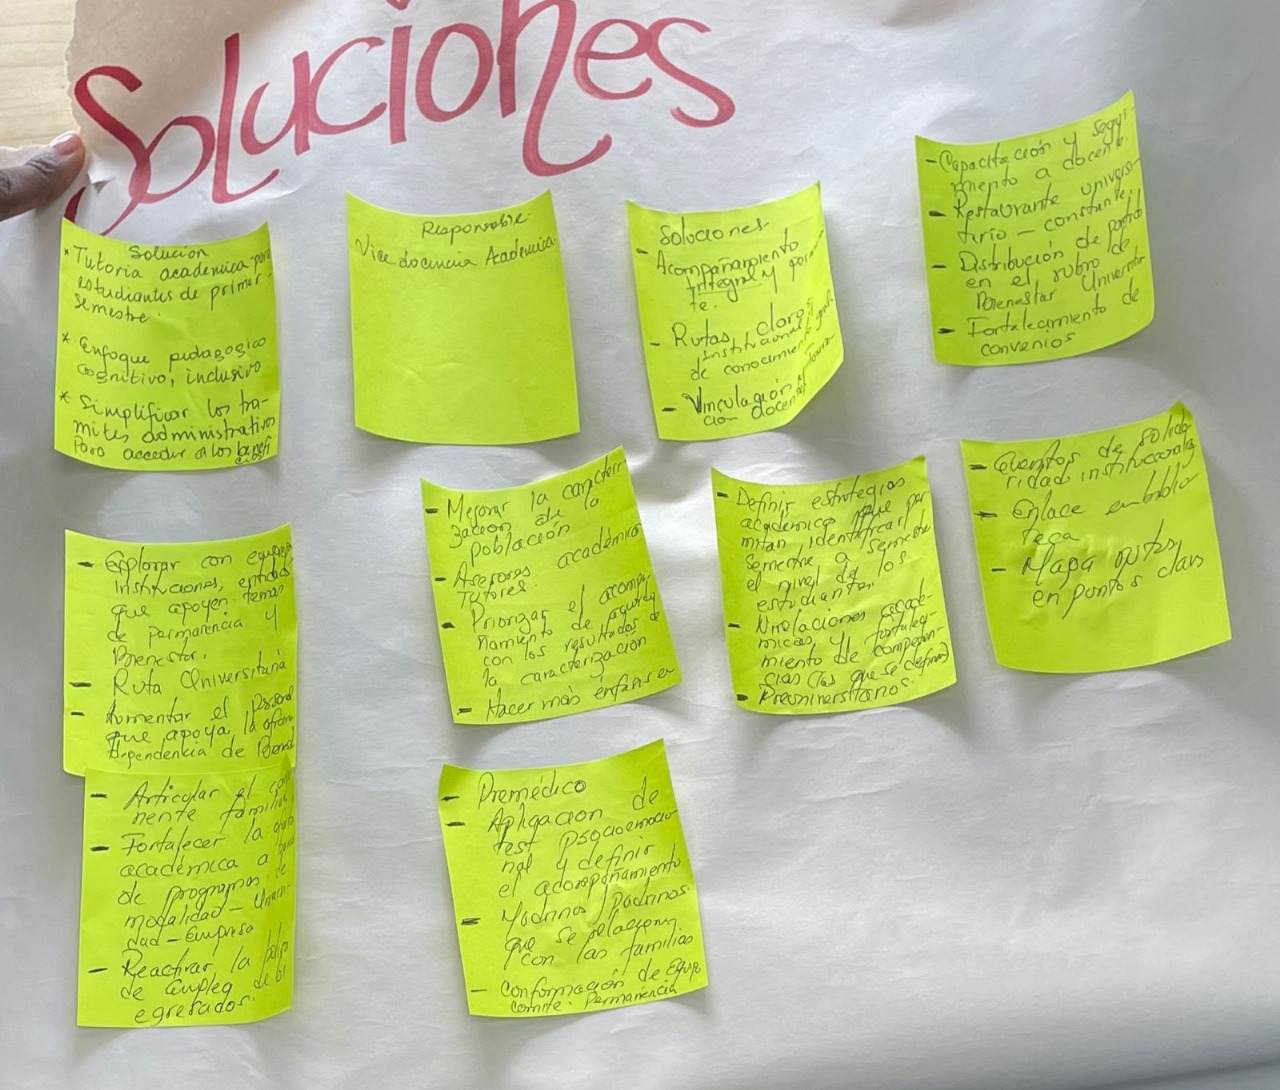 Soluciones
Solución
* Tutoria academica para
estudiantes de primer
semestre.
* Enfoque pedagogico
cognitivo, inclusivo
* Simplificar los tra-
mites administrativos
Para acceder a los benefi
cios
Responsable:
Vicedocencia Academica
Soluciones
- Acompañamiento
Integral y
te.
- Rutas claras
institucional
de conocimiento
- Vinculación
cion docen
- Capacitación y segui-
miento a docente.
- Restaurante univers-
tario - constante.
- Distribución de
en el rubro de
Bienestar Universitar
- Fortalecimiento de
convenios
- Explorar con
Instituciones, entidades
que apoyen temas
de permanencia y
Bienestar.
- Ruta Universitaria
- Aumentar el personal
que apoya la
dependencia de Bienest
- Mejorar la caracteri
zacion de la
población
- Asesores académico
Tutores.
- Priorizar el acompa
ñamiento de
con los resultados de
la caracterización
- Hacer más enfasis en
- Definir estrategias
académicas que per
mitan identificar
semestre a semestre
el nivel de los
estudiantes.
- Nivelaciones acadé-
micas y fortaleci
miento de competen-
cias (las que se definan)
- Preuniversitarios.
- Eventos de solida
ridad
- Enlace en biblio
teca
- Mapa rutas
en puntos claves
- Articular el com
nente familiar
- Fortalecer la
académica a
de programas de
modalidad - Univer-
dad - Empresa
- Reactivar la bolsa
de empleo de
egresados.
- Premédico
- Aplicacion de
test psicoemocio-
nal y definir
el acompañamiento
- Madrinas / padrinos
que se relacionen
con las familias
- Conformación de Equipo
Comité: Permanencia